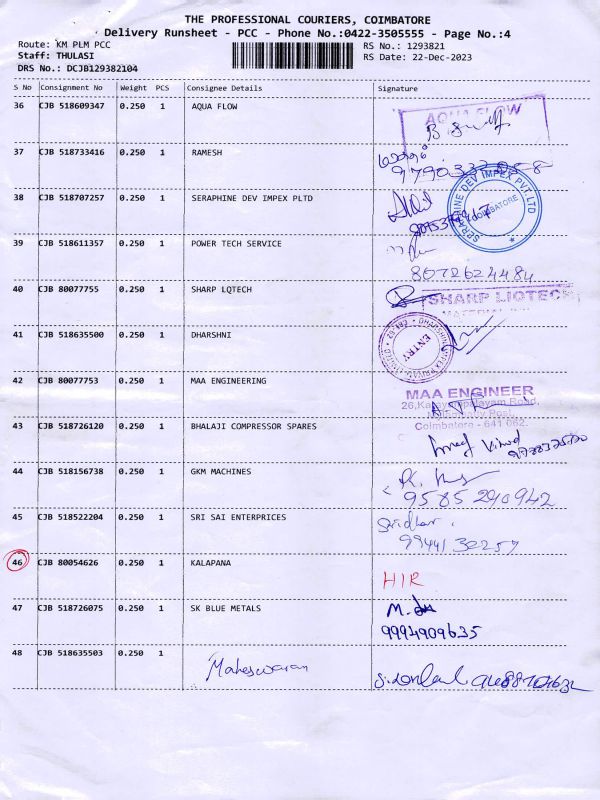 THE PROFESSIONAL COURIERS, COIMBATORE
Delivery Runsheet - PCC - Phone No.:0422-3505555 - Page No.:4
Route: KM PLM PCC
RS No.: 1293821
Staff: THULASI
RS Date: 22-Dec-2023
DRS No.: DCJB129382104
S No Consignment No Weight PCS Consignee Details Signature
36 CJB 518609347 0.250 1 AQUA FLOW
AQUA FLOW
37 CJB 518733416 0.250 1 RAMESH
38 CJB 518707257 0.250 1 SERAPHINE DEV IMPEX PLTD
SERAPHINE DEV IMPEX PVT.LTD
COIMBATORE
39 CJB 518611357 0.250 1 POWER TECH SERVICE
8072624484
40 CJB 80077755 0.250 1 SHARP LQTECH
SHARP LIQTECH
41 CJB 518635500 0.250 1 DHARSHNI
ENTRY
42 CJB 80077753 0.250 1 MAA ENGINEERING
MAA ENGINEER
Coimbatore - 641 062.
43 CJB 518726120 0.250 1 BHALAJI COMPRESSOR SPARES
Vinod
44 CJB 518156738 0.250 1 GKM MACHINES
9585290942
45 CJB 518522204 0.250 1 SRI SAI ENTERPRICES
Sridhar.
9944130257
46 CJB 80054626 0.250 1 KALAPANA
HIR
47 CJB 518726075 0.250 1 SK BLUE METALS
9994909635
48 CJB 518635503 0.250 1 Maheswaran